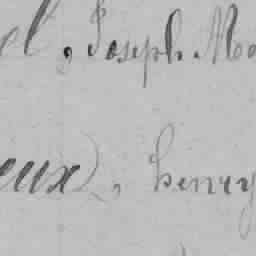 el, Joseph Mo
eux), henry